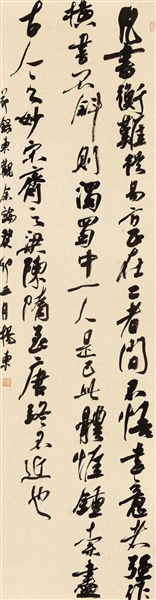 凡書衡難從易方正在二者間不悟書意者強作
橫書斜則濁蜀中一人是已此體惟鍾索盡
古人之妙宋齊之梁陳隋至唐終不近也
節錄東觀余論癸卯三月楊東